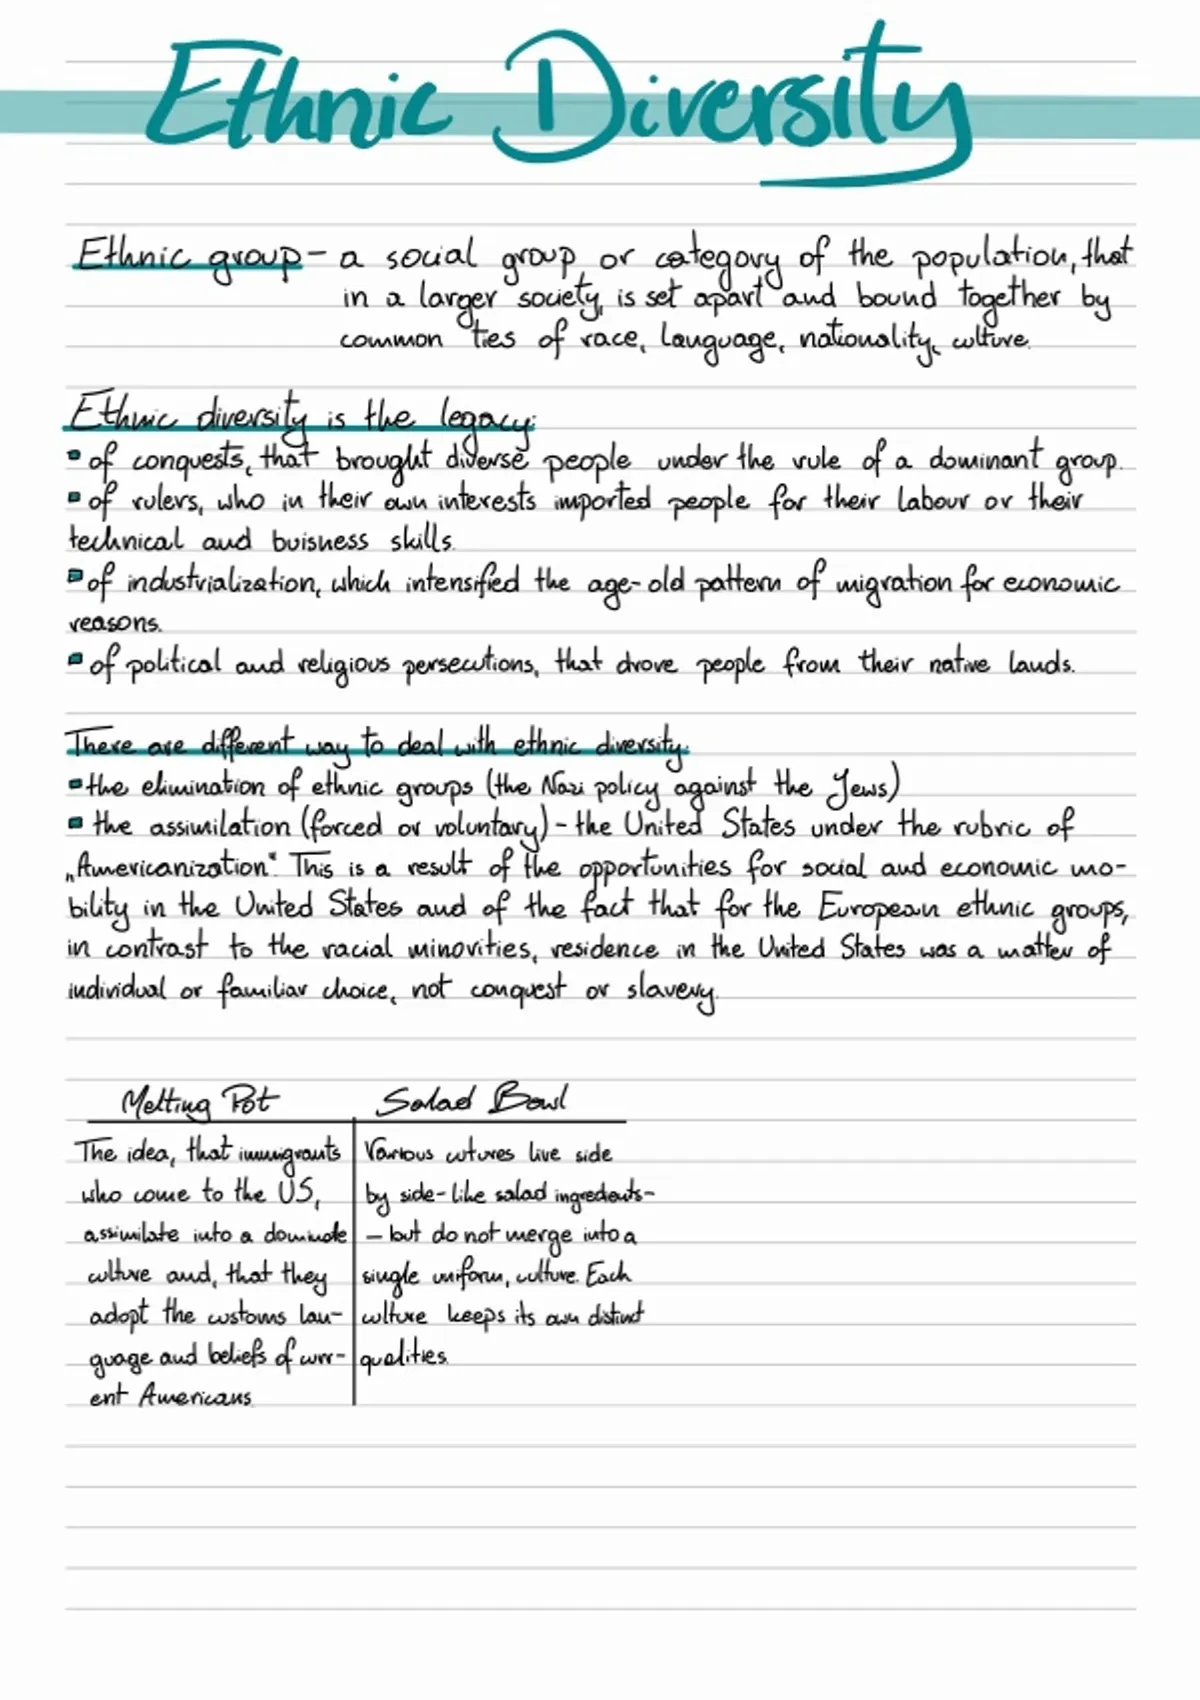 Ethnic Diversity
Ethnic group - a social group or category of the population, that
in a larger society, is set apart and bound together by
common ties of race, language, nationality, culture.
Ethnic diversity is the legacy:
▪ of conquests, that brought diverse people under the rule of a dominant group.
▪ of rulers, who in their own interests imported people for their labour or their
technical and buisness skills.
▪ of industrialization, which intensified the age-old pattern of migration for economic
reasons.
▪ of political and religious persecutions, that drove people from their native lands.
There are different way to deal with ethnic diversity:
▪ the elimination of ethnic groups (the Nazi policy against the Jews)
▪ the assimilation (forced or voluntary) - the United States under the rubric of
„Americanization“. This is a result of the opportunities for social and economic mo-
bility in the United States and of the fact that for the European ethnic groups,
in contrast to the racial minorities, residence in the United States was a matter of
individual or familiar choice, not conquest or slavery.
Melting Pot
The idea, that immigrants
who come to the US,
assimilate into a dominate
culture and, that they
adopt the customs lan-
guage and beliefs of curr-
ent Americans.
Salad Bowl
Various cutures live side
by side - like salad ingredents -
- but do not merge into a
single uniform, culture. Each
culture keeps its own distinct
qualities.